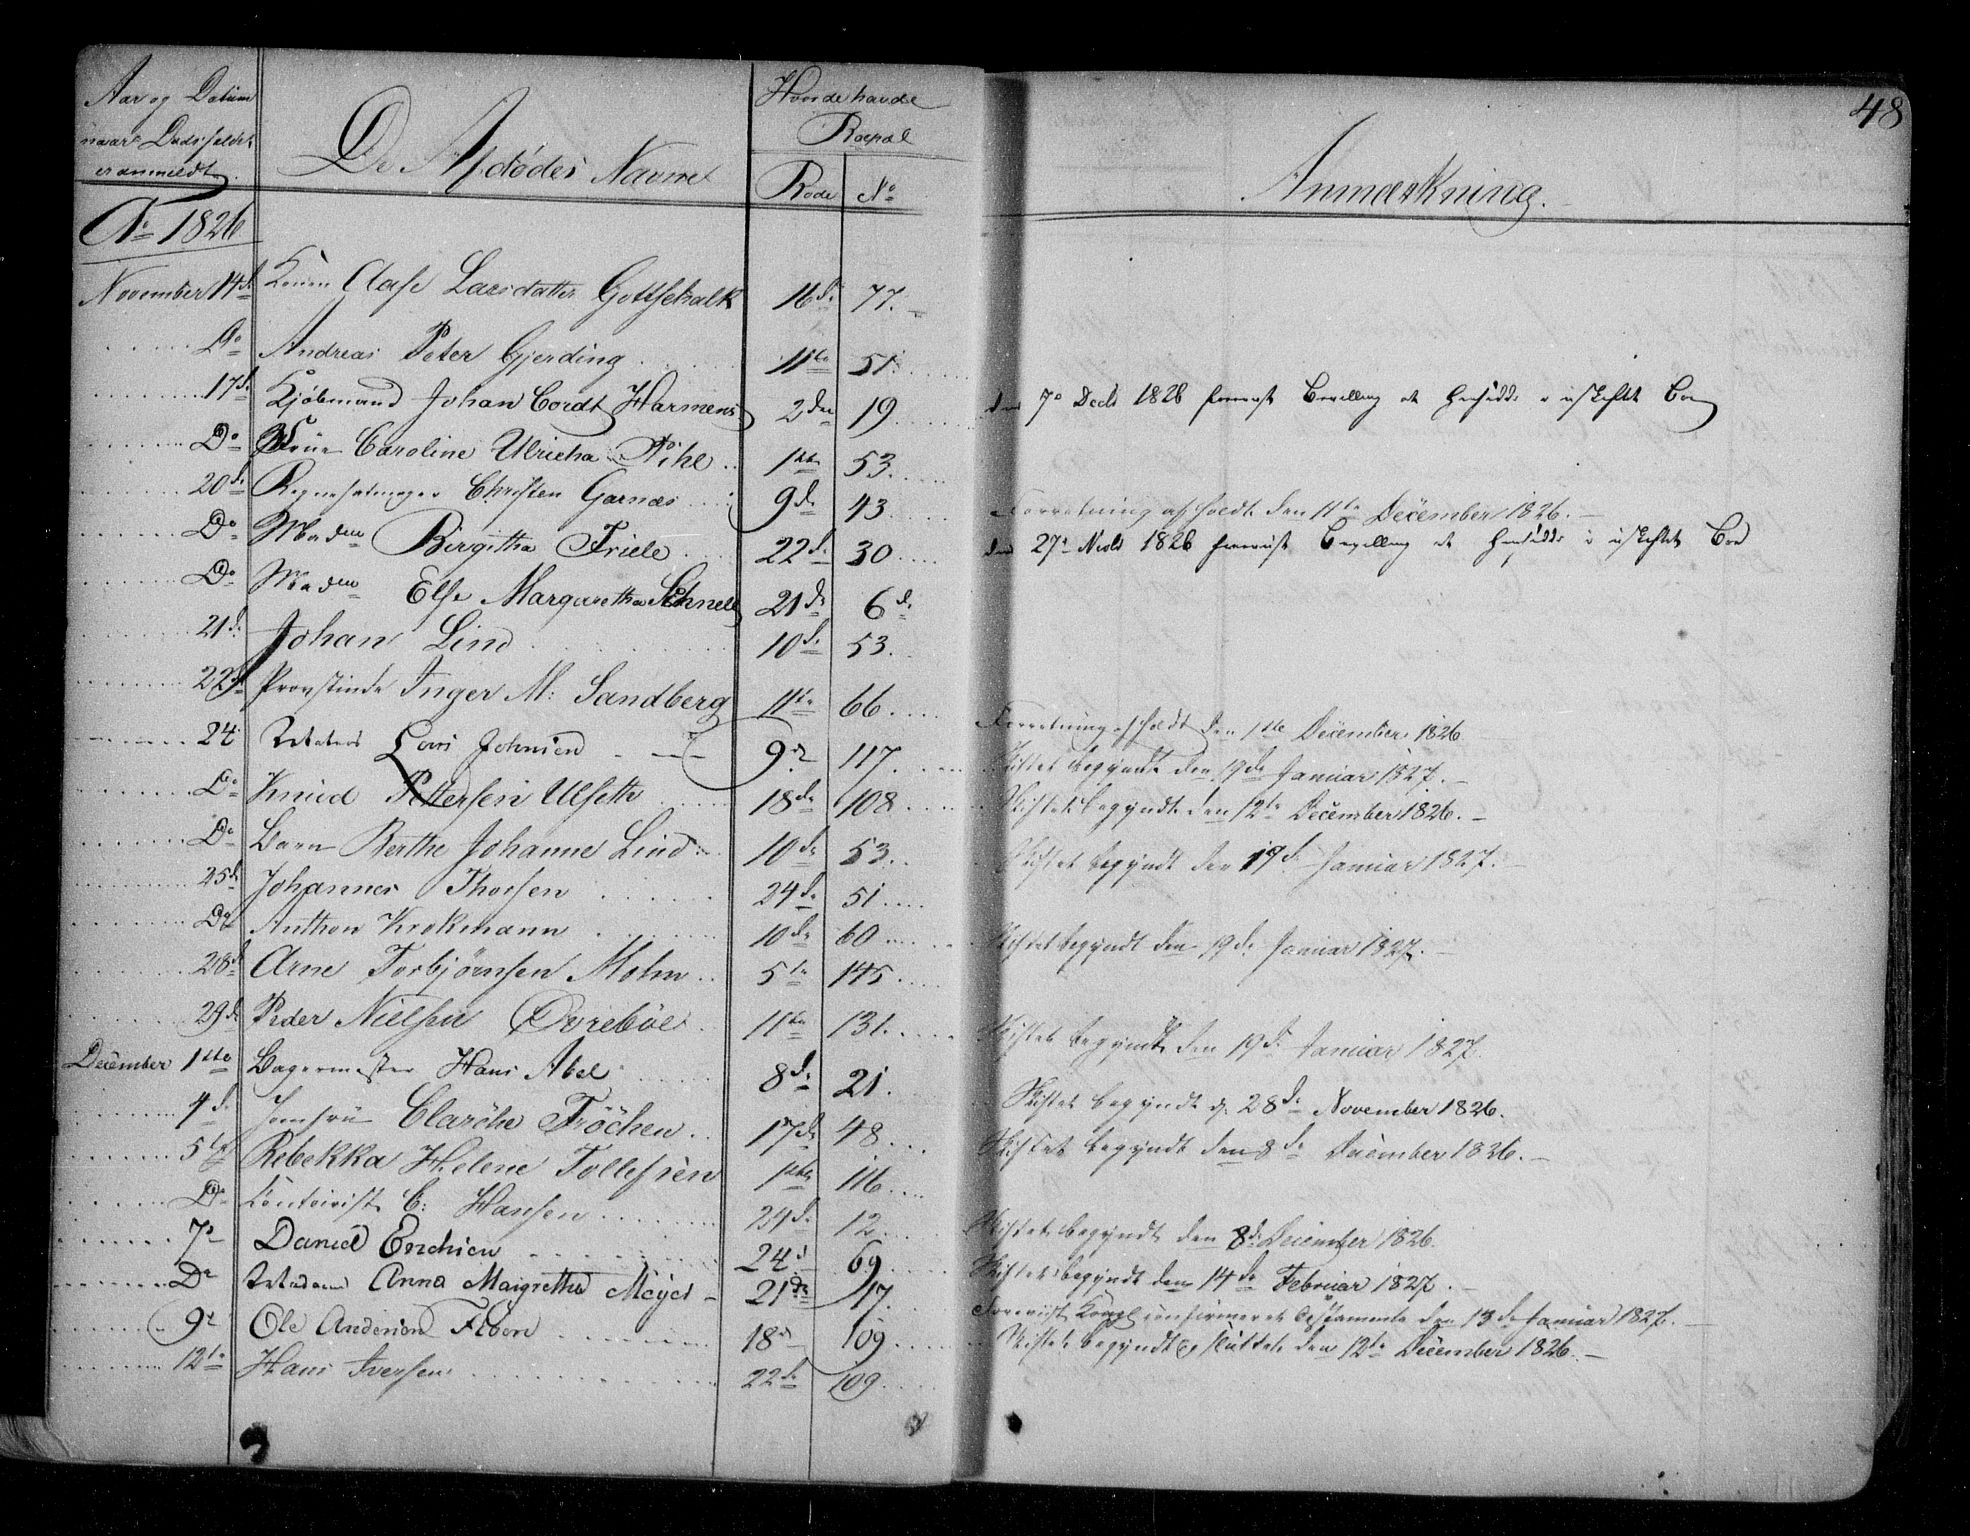 48
Aar og Datum
naar Dødsfaldet
er anmeldt.
De Afdødes Navne
Hvor de havde
Boepæl
Rode No
Anmærkning.
Ao 1826
November 14de Konen Aase Larsdatter Gottschalk 16de 77.
Do Andreas Peter Gjerding 11te 51.
17de Kjøbmand Johan Cordt Harmens 2den 19 den 7de Decbr 1826 Bevilling at hensidde i uskiftet Boe
Do Frue Caroline Ulricha Pihl 1ste 53.
20de Christen Garnæs 9de 43. Forretning afholdt den 11te December 1826.
Do Maden Birgitha Friele 22de 30 den 27de Novbr 1826 Bevilling at hensidde i uskiftet Boe
Do Maden Else Margaretha Schnell 21de 6de
21de Johan Lind 10de 53.
22de Provstinde Inger M: Sandberg 11te 66. Forretning afholdt den 1ste December 1826
24 Johnsen 9de 117. Skiftet begyndt den 19de Januar 1827.
Do Knud Pettersen Ulseth 18de 108 Skiftet begyndt den 12te December 1826.
Do Barn Berthe Johanne Lind 10de 53. Skiftet begyndt den 19de Januar 1827.
25de Johannes Thorsen 24de 51
Do Anthon Krokmann 10de 60 Skiftet begyndt den 19de Januar 1827.
28de Arne Torbjørnsen Molm 5te 145.
29de Peder Nielsen Øvrebøe 11te 131. Skiftet begyndt den 19de Januar 1827.
December 1ste Bagermester Hans Abel 8de 21. Skiftet begyndt d. 28de November 1826.
4de Jomfru Fröchen 17de 48 Skiftet begyndt den 8de December 1826.
5te Rebekka Helene Tollefsen 1ste 116
Do Contoirist C: Hansen 24de 12 Skiftet begyndt den 8de December 1826.
7de Daniel Erichsen 24de 69 Skiftet begyndt den 14de Februar 1827.
Do Madame Anna Maigretha Meyer 21de 17. Forevist Kongl confirmeret Testamente den 13de Januar 1827.
9de Ole Andersen 18de 109 Skiftet begyndt og sluttet den 12te December 1826.
12te Hans Iversen 22de 109